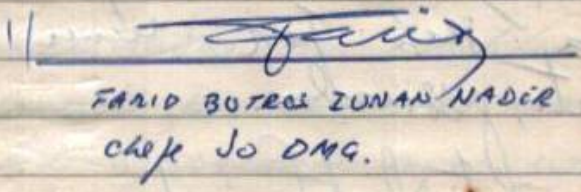 Farid
FARID BOTROS ZUNAN NADER
chefe do DMG.